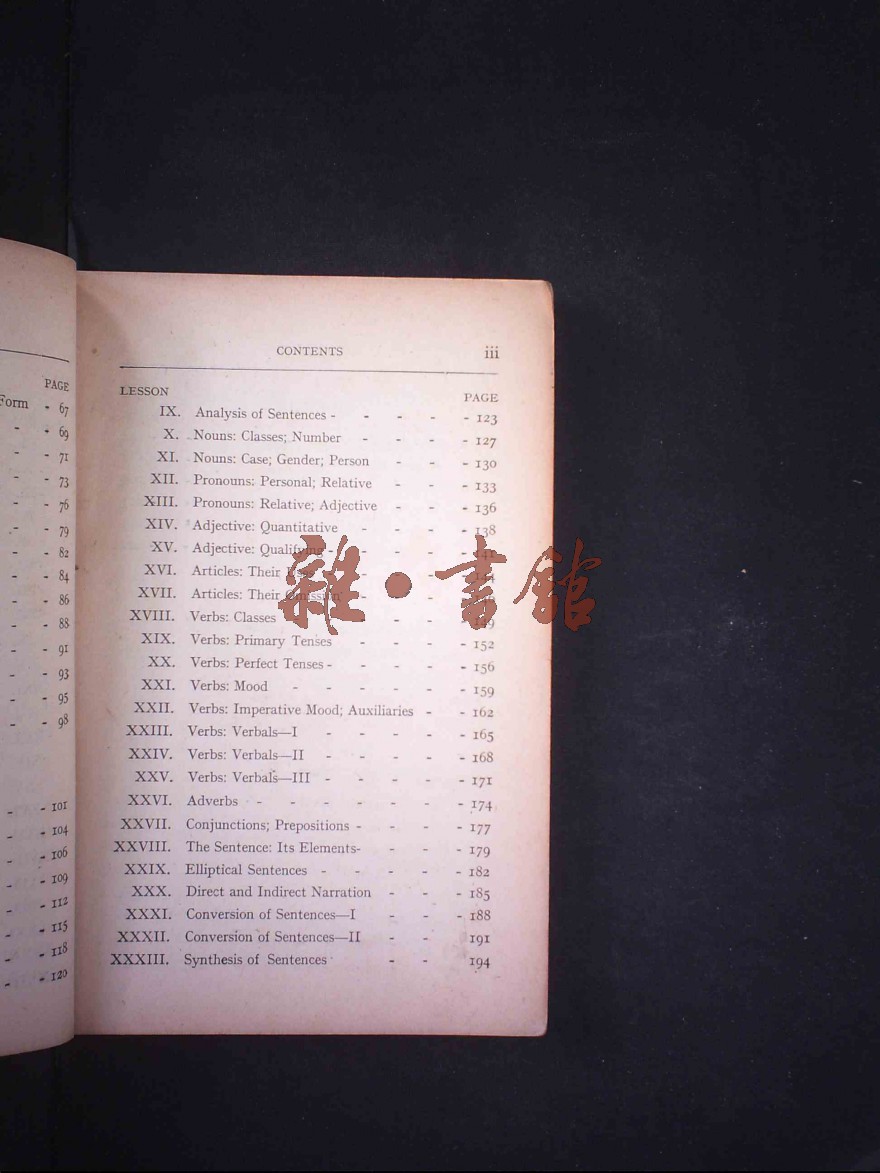 PAGE
Form - 67
- - 69
- - 71
- - 73
- - 76
- - 79
- - 82
- - 84
- - 86
- - 88
- - 91
- - 93
- - 95
- - 98
- - 101
- - 104
- - 106
- - 109
- - 112
- - 115
- - 118
- - 120
CONTENTS iii
LESSON PAGE
IX. Analysis of Sentences - - - - - 123
X. Nouns: Classes; Number - - - - 127
XI. Nouns: Case; Gender; Person - - - 130
XII. Pronouns: Personal; Relative - - - 133
XIII. Pronouns: Relative; Adjective - - - 136
XIV. Adjective: Quantitative - - - - 138
XV. Adjective: Qualifying - - - - - 141
XVI. Articles: Their - - - -
XVII. Articles: Their Omission - - -
XVIII. Verbs: Classes - - - - 149
XIX. Verbs: Primary Tenses - - - - 152
XX. Verbs: Perfect Tenses - - - - - 156
XXI. Verbs: Mood - - - - - - 159
XXII. Verbs: Imperative Mood; Auxiliaries - - 162
XXIII. Verbs: Verbals—I - - - - - 165
XXIV. Verbs: Verbals—II - - - - - 168
XXV. Verbs: Verbals—III - - - - - 171
XXVI. Adverbs - - - - - - - 174
XXVII. Conjunctions; Prepositions - - - - 177
XXVIII. The Sentence: Its Elements- - - - 179
XXIX. Elliptical Sentences - - - - - 182
XXX. Direct and Indirect Narration - - - 185
XXXI. Conversion of Sentences—I - - - 188
XXXII. Conversion of Sentences—II - - 191
XXXIII. Synthesis of Sentences - - 194
雜•書館